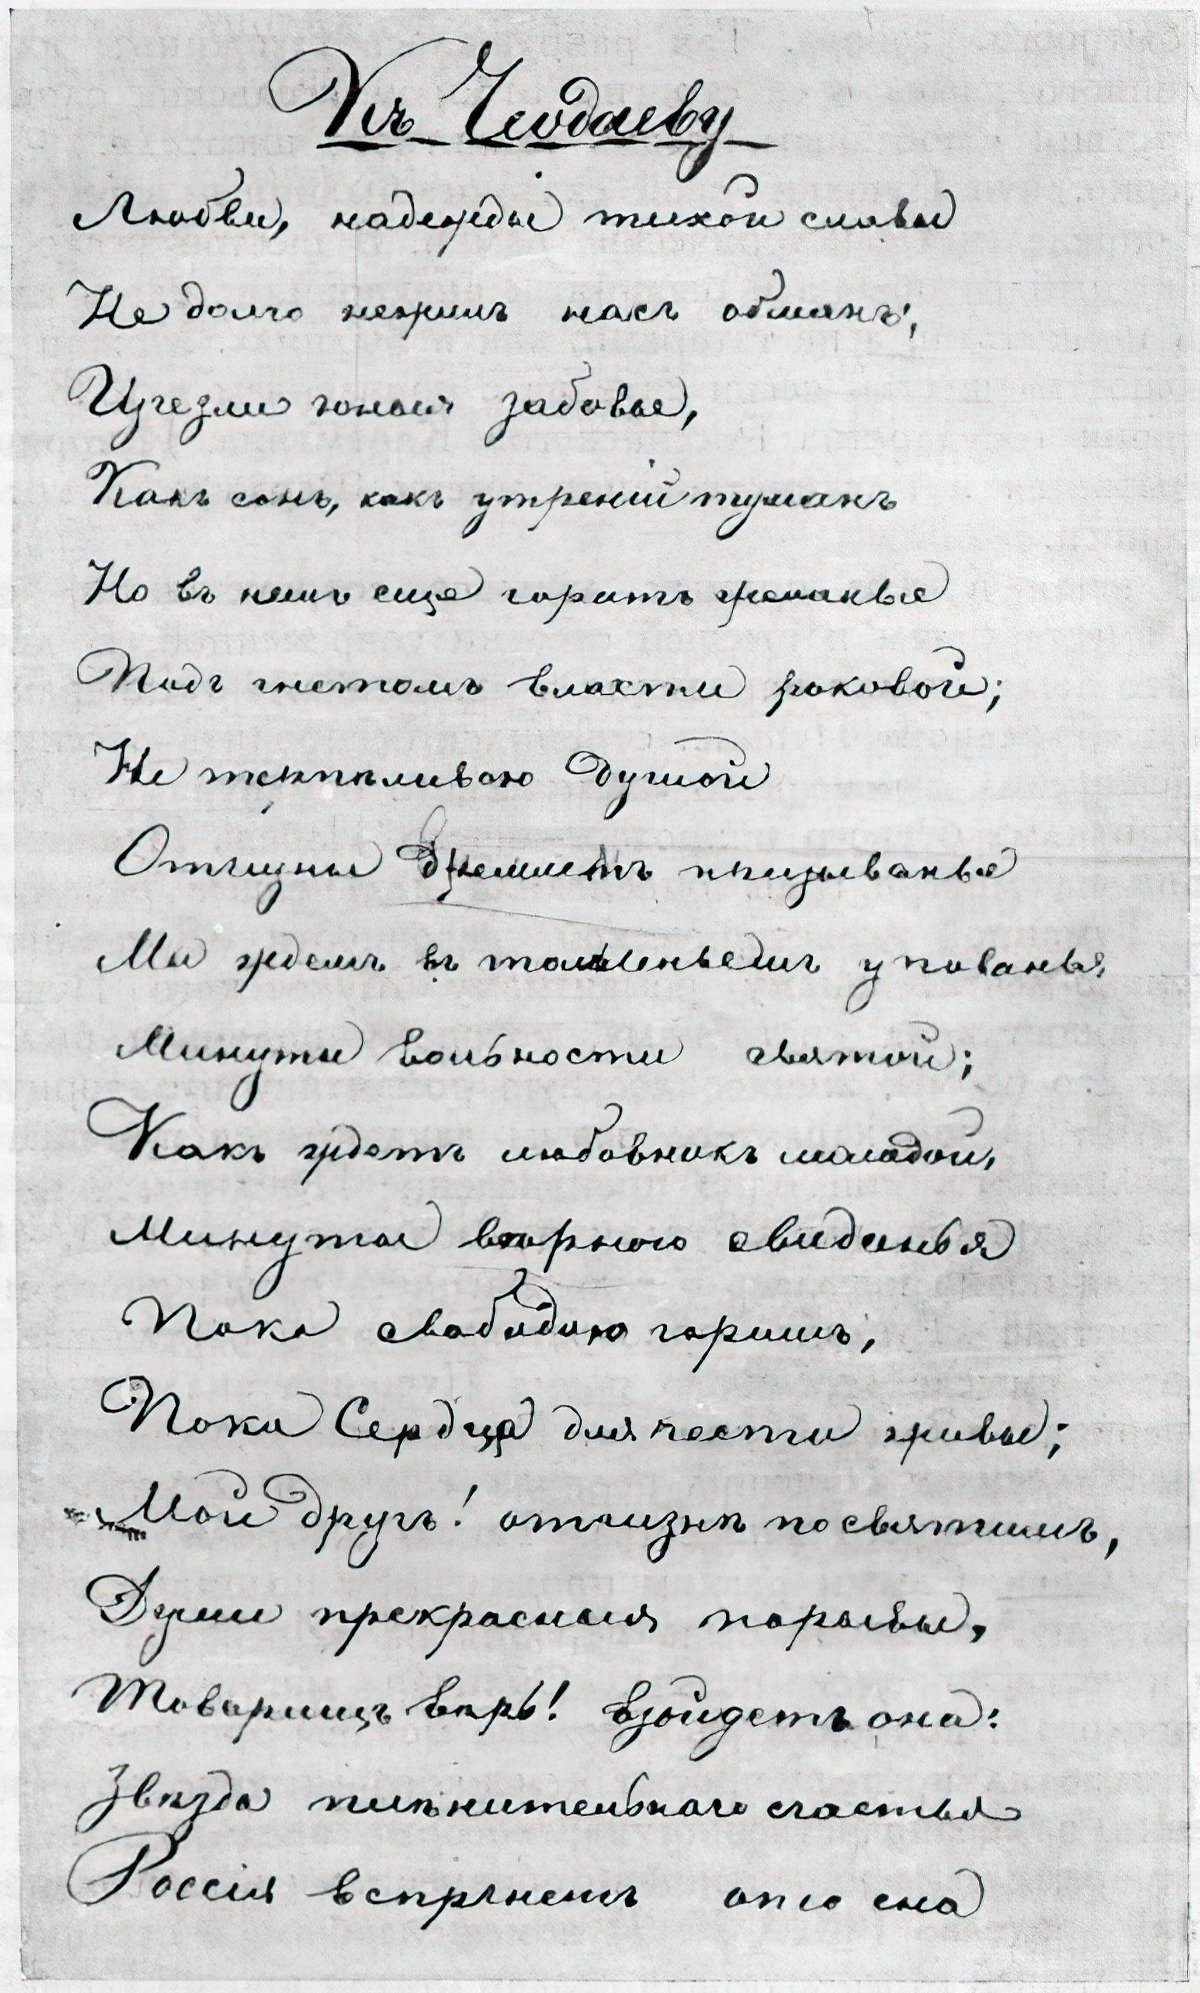 Къ Чеодаеву
Любви, надежды тихой славы
Не долго нежилъ насъ обманъ;
Изчезли юныя забовы,
Какъ сонъ, какъ утреній туманъ
Но въ немъ еще горитъ желанье
Подъ гнетомъ власти роковой;
Не терпѣливою душой
Отчизны внемлитъ призыванье
Мы ждемъ въ томленьемъ упованья
Минуты вольности святой;
Какъ ждетъ любовникъ маладой,
Минуты вѣрного свиданья
Пока свабодою горимъ,
Пока Сердца для чести живы;
Мой другъ! отчизнѣ посвятимъ,
Души прекрасныя порывы,
Товарищъ вѣрь! взойдетъ она:
Звѣзда пленительного счастья
Россія вспрянетъ ото сна